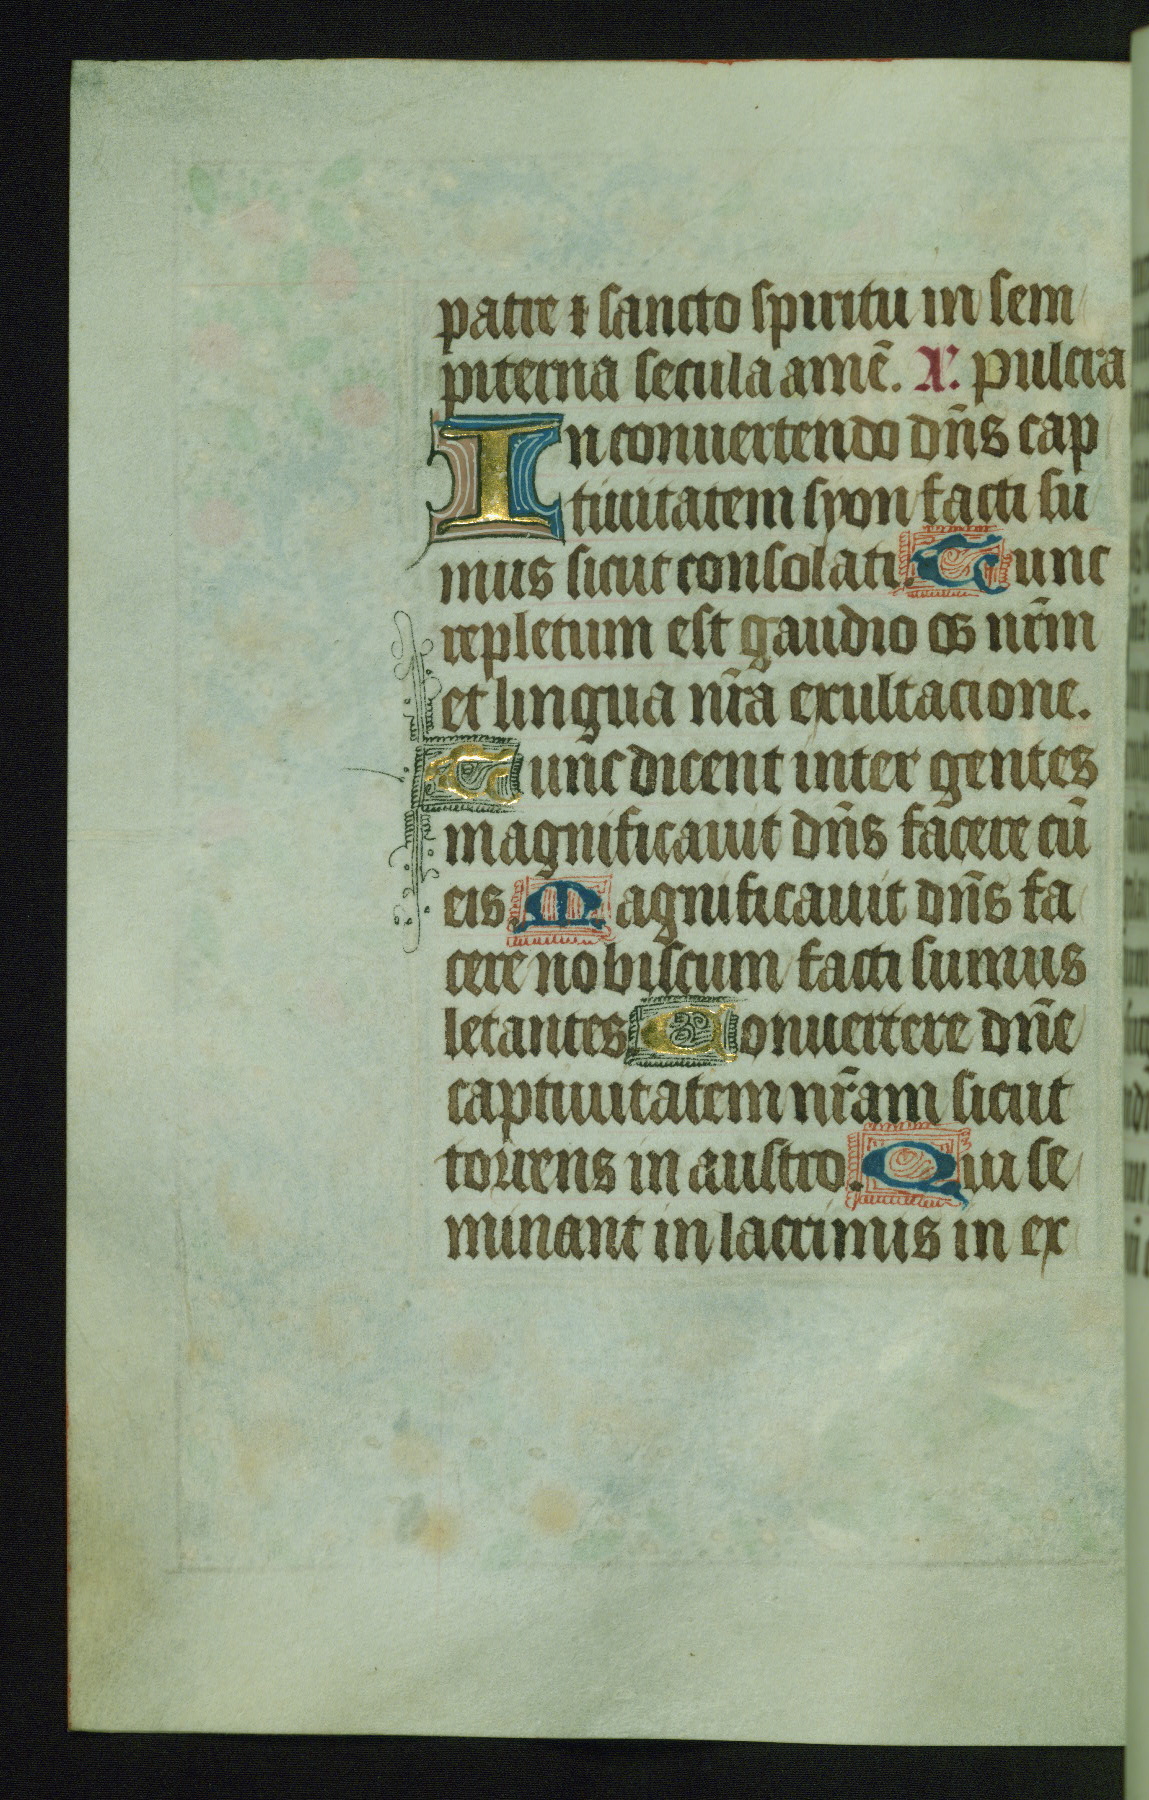 patre ⁊ sancto spiritu in sem
piterna secula amē. A͞. pulcra
In conuertendo dn̄s cap
tiuitatem syon facti su
mus sicut consolati. Tunc
repletum est gaudio os nr̄m
et lingua nr̄a exultacione.
Tunc dicent inter gentes
magnificauit dn̄s facere cū
eis. Magnificauit dn̄s fa
cere nobiscum facti sumus
letantes Conuertere dn̄e
captiuitatem nr̄am sicut
torrens in austro. Qui se
minant in lacrimis in ex